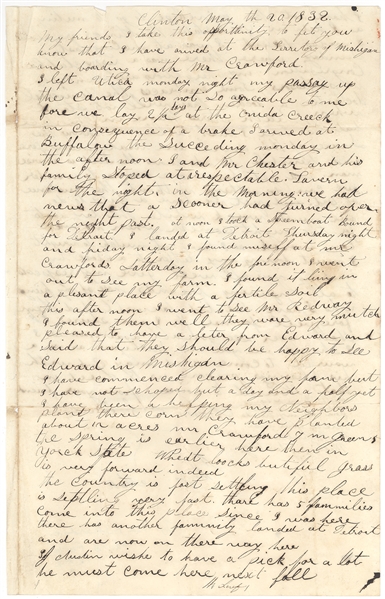 Clinton May th 20 1832
My friends I take this opportunity to let you
know that I have arived at the Teritory of Mishigan
and boarding with Mr Crawford
I left Utica monday night my passag up
the canal was not So agreable to me
fore we lay 2½ days at the Onida Creech
in consequence of a brake I arived at
Buffalow the Succeeding monday in
the after noon I and Mr Chester and his
family Stoped at respectable Tavern
for the night in the Morning we had
news that a Scooner had turned over
the night past. at noon I took a Steamboat bound
for Detroit. I landed at Detroit Thursday night
and friday night I found miself at mr
Crawfords Satterday in the fore noon I went
out to See my farm. I found it ling in
a plesant place with a fertile Soil
this after noon I went to See Mr
I found them well they ware very mutch
pleased to have a leter from Edward and
Said that they Should be happy to See
Edward in Mishigan
I have commenced clearing my farm but
I have not but a day and a half yet
I have been a helping my Neighbors
plant there corn they have planted
about 12 acres mr Crawford & mr
the Spring is earlier here then in
Yorck State Wheat loocks butiful grass
is very forward indeed
the Country is fast Setling this place
is Settling very fast. there has 5 families
Come into this place Since I was here
there has another faminly landed at Detroit
and are now on there way here
If Austin wishe to have a pick for a lot
he must come here next fall